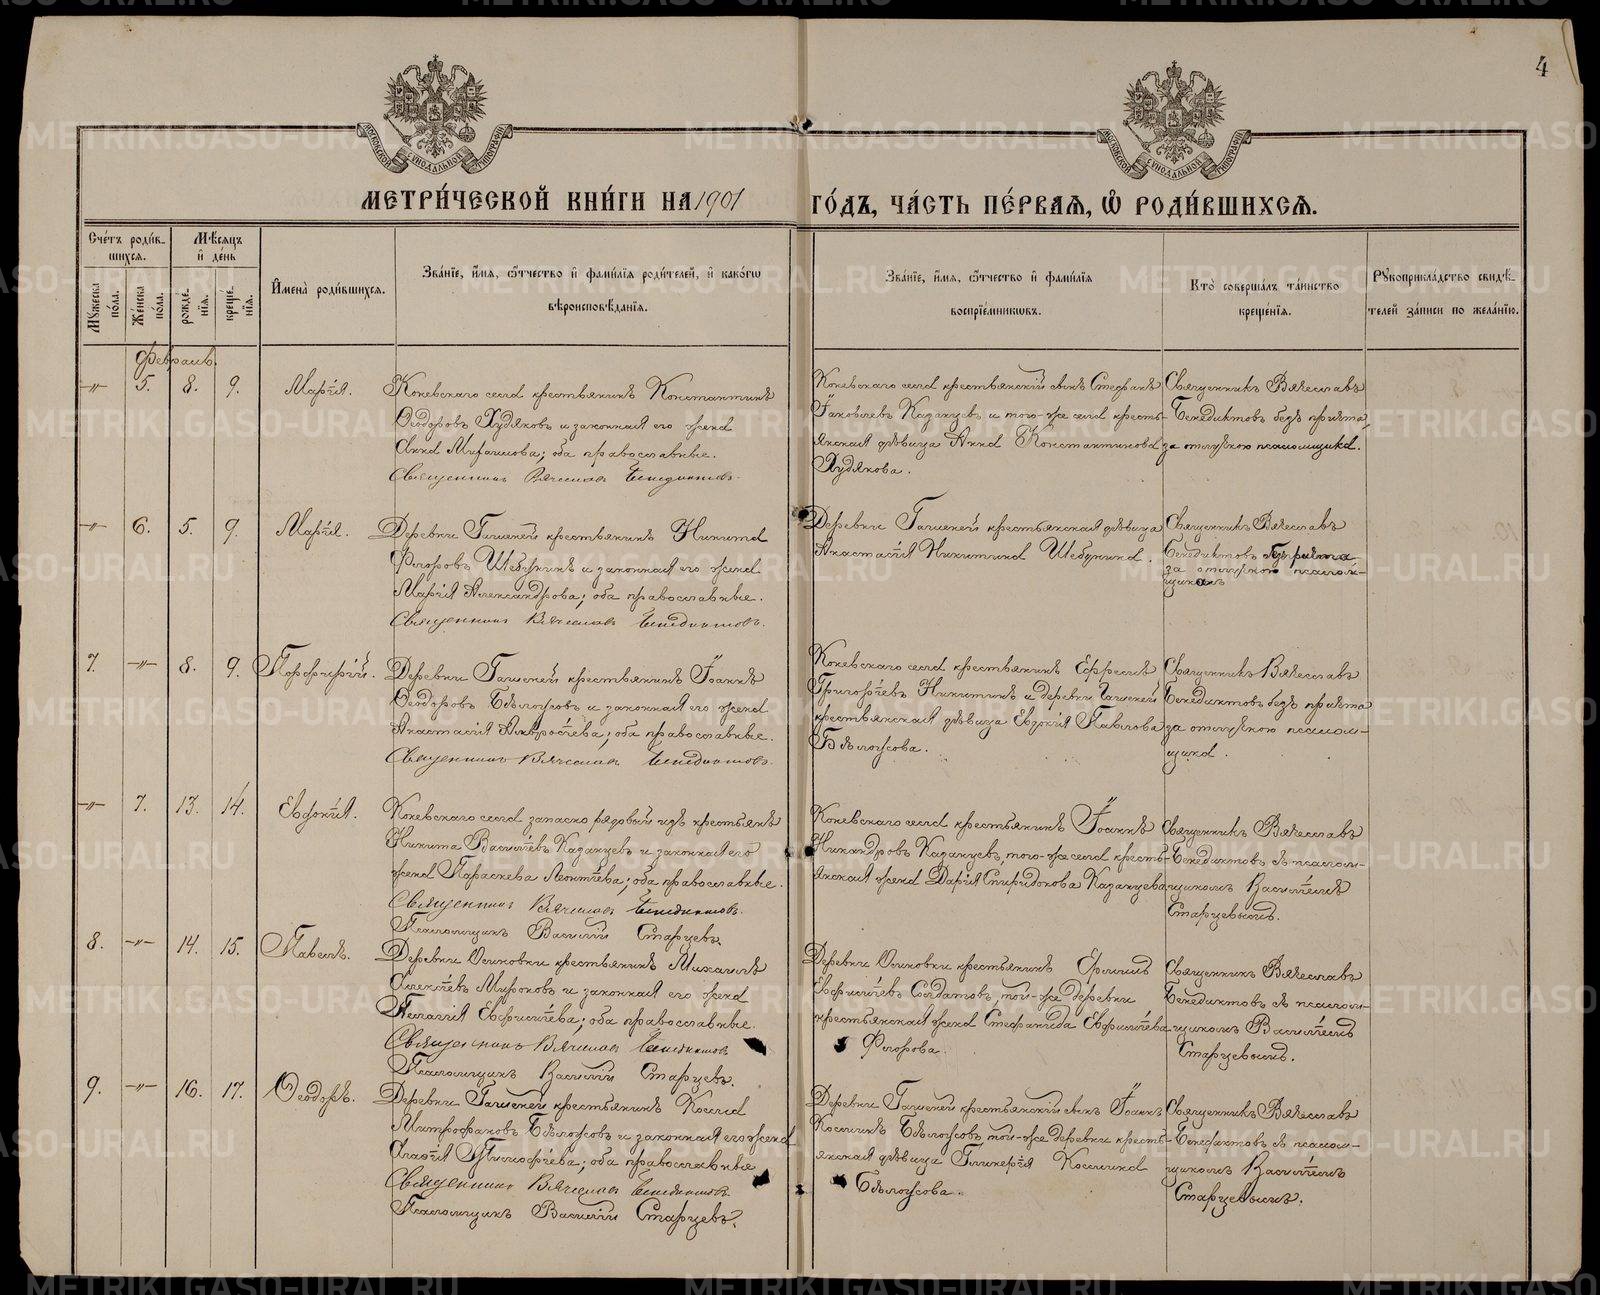 4
МОСКОВСКОЙ СѴНОДАЛЬНОЙ ТИПОГРАФИИ
МОСКОВСКОЙ СѴНОДАЛЬНОЙ ТИПОГРАФИИ
МЕТРИ́ЧЕСКОЙ КНИ́ГИ НА 1901 ГО́ДЪ, ЧА́СТЬ ПЕ́РВАѦ, Ѡ҆ РОДИ́ВШИХСѦ.
Сче́тъ роди́в-
шихсѧ.
Мꙋ́жеска по́ла.
Же́нска по́ла.
Мѣ́сѧцъ
и҆ де́нь
рожде́нїѧ.
креще́нїѧ.
И҆мена̀ роди́вшихсѧ.
Зва́нїе, и҆́мѧ, ѻ҆́тчество и҆ фами́лїѧ роди́телей, и҆ како́гѡ
вѣроисповѣ́данїѧ.
Зва́нїе, и҆́мѧ, ѻ҆́тчество и҆ фами́лїѧ
воспрїе́мникѡвъ.
Кто̀ соверша́лъ та́инство
креще́нїѧ.
Рꙋкоприкла́дство свидѣ́-
телей за́писи по жела́нїю.
Февраль.
-"- 5. 8. 9. Марія.
Коневскаго села крестьянинъ Константинъ
Ѳеодоровъ Худяковъ и законная его жена
Анна; оба православные.
Священникъ Вячеславъ Бенедиктовъ.
Коневскаго села крестьянскій сынъ Стефанъ
Іаковлевъ Казанцевъ и того-же села кресть-
янская дѣвица Анна Константинова
Худякова.
Священникъ Вячеславъ
Бенедиктовъ безъ причта,
за отлучкою псаломщика.
-"- 6. 5. 9. Марія.
Деревни Гашеней крестьянинъ Никита
Флоровъ Шебунинъ и законная его жена
Марія Александрова; оба православные.
Священникъ Вячеславъ Бенедиктовъ.
Деревни Гашеней крестьянская дѣвица
Анастасія Никитина Шебунина.
Священникъ Вячеславъ
Бенедиктовъ безъ причта
за отлучкою псалом-
7. -"- 8. 9. Порфирій.
Деревни Гашеней крестьянинъ Іоаннъ
Ѳеодоровъ Бѣлоусовъ и законная его жена
Анастасія Амвросіева; оба православные.
Священникъ Вячеславъ Бенедиктовъ.
Коневскаго села крестьянинъ Ефремъ
Григорьевъ Никитинъ и деревни Гашеней
крестьянская дѣвица Евдокія Павлова
Бѣлоусова.
Священникъ Вячеславъ
Бенедиктовъ безъ причта
за отлучкою псалом-
щика.
-"- 7. 13. 14. Евдокія.
Коневскаго села запасно рядовый изъ крестьянъ
Никита Васильевъ Казанцевъ и законная его
жена Параскева Леонтіева; оба православные.
Священникъ Вячеславъ Бенедиктовъ.
Псаломщикъ Василій Старцевъ.
Коневскаго села крестьянинъ Іоаннъ
Никандровъ Казанцевъ, того-же села кресть-
янская жена Дарія Спиридонова Казанцева
Священникъ Вячеславъ
Бенедиктовъ съ псалом-
щикомъ Василіемъ
Старцевымъ.
8. -"- 14. 15. Павелъ.
Деревни Осиновки крестьянинъ Михаилъ
Алексѣевъ Мироновъ и законная его жена
Пелагія; оба православные.
Священникъ Вячеславъ Бенедиктовъ
Псаломщикъ Василій Старцевъ.
Деревни Осиновки крестьянинъ
Солдатовъ, той-же деревни
крестьянская жена Стефанида
Флорова.
Священникъ Вячеславъ
Бенедиктовъ съ псалом-
щикомъ Василіемъ
Старцевымъ.
9. -"- 16. 17. Ѳеодоръ.
Деревни Гашеней крестьянинъ Косма
Митрофановъ Бѣлоусовъ и законная его жена
Тимофеева; оба православные
Священникъ Вячеславъ Бенедиктовъ.
Псаломщикъ Василій Старцевъ.
Деревни Гашеней крестьянскій сынъ Іоаннъ
Косминъ Бѣлоусовъ той-же деревни кресть-
янская дѣвица Гликерія Космина
Бѣлоусова.
Священникъ Вячеславъ
Бенедиктовъ съ псалом-
щикомъ Василіемъ
Старцевымъ.
METRIKI.GASO-URAL.RU